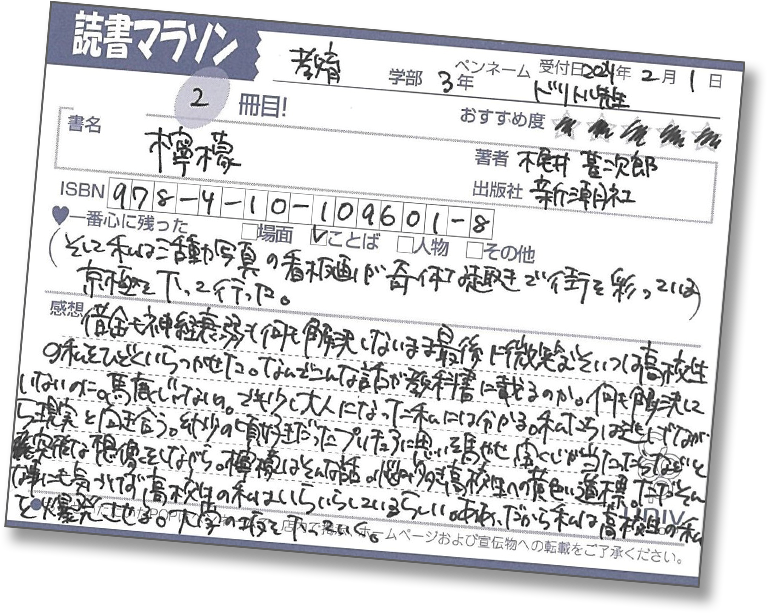 読書マラソン
教育 学部 3年 ペンネーム 受付日2021年 2月 1日
ドリトル先生
2 冊目!
おすすめ度
書名 檸檬
著者 梶井基次郎
出版社 新潮社
ISBN 978-4-10-109601-8
一番心に残った □場面 ☑ことば □人物 □その他
(そして私は活動写真の看板画が奇体な趣きで街を彩っている
京極を下って行った。)
感想 借金も神経衰弱も何も解決しないまま最後に微笑むという話は高校生
の私をひどくいらつかせた。なんでこんな話が教科書に載るのか。何も解決して
いないのに。馬鹿じゃない。でも少し大人になった私には分かる。私たちは逃げなが
ら現実と向き合う。幼少の頃好きだったプリキュアに思いを馳せ、宝くじが当たったらなどと
な想像をしながら。檸檬はそんな話。悩み多き高校生への黄色い道標。ただそん
な事にも気づかず高校生の私はいらいらしているらしい。ああ、だから私は高校生の私
を爆発させよ。大学の坂を下っていく。
UNIV
ホームページおよび宣伝物への転載をご了承ください。